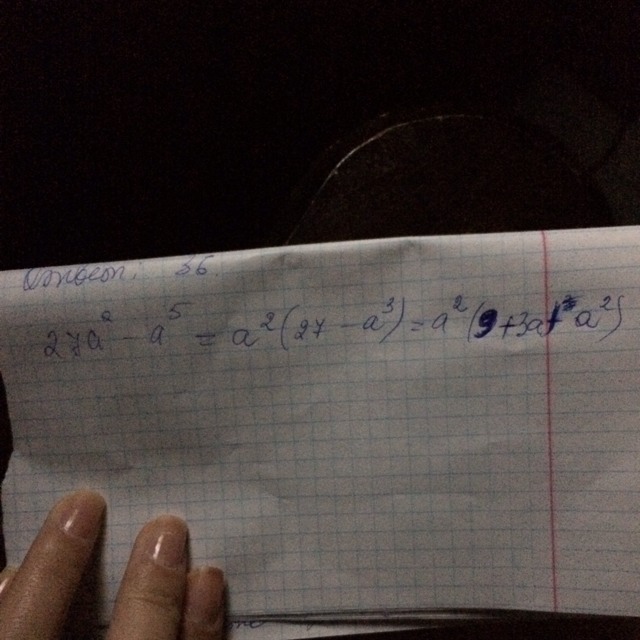 36
27a² - a⁵ = a²(27 - a³) = a²(9 + 3a + a²)